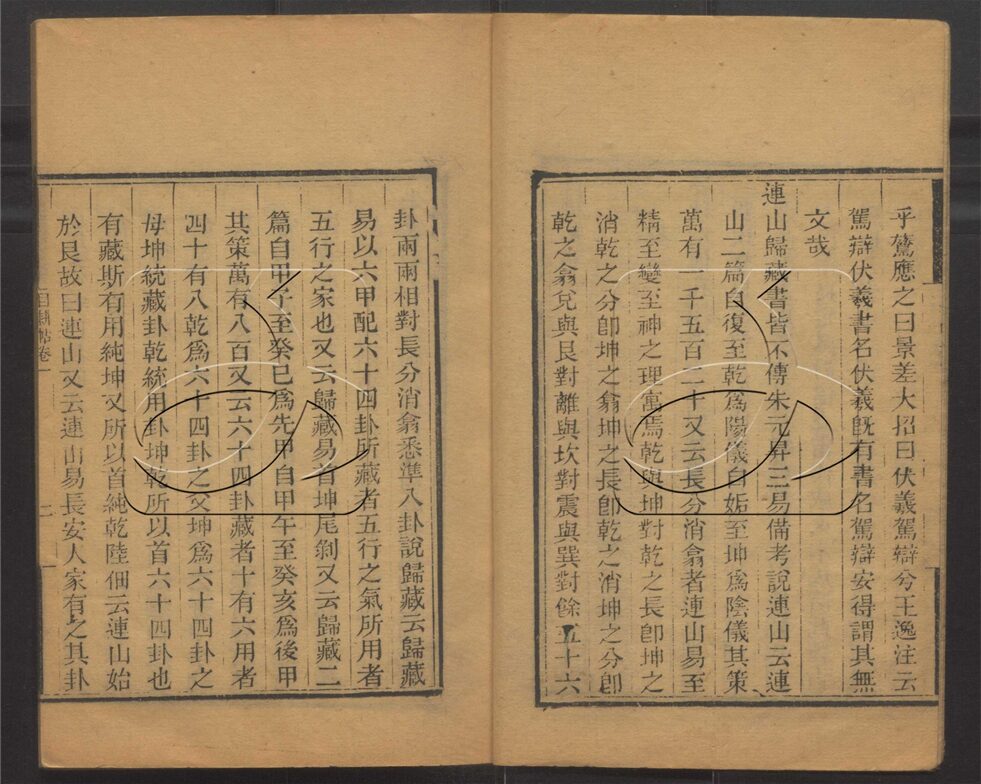 乎驁應之曰景差大招曰伏羲駕辯兮王逸注云
駕辯伏羲書名伏羲旣有書名駕辯安得謂其無
文哉
連山歸藏書皆不傳朱元昇三易備考說連山云連
山二篇自復至乾爲陽儀自姤至坤爲陰儀其策
萬有一千五百二十又云長分消翕者連山易至
精至變至神之理寓焉乾與坤對乾之長卽坤之
消乾之分卽坤之翕坤之長卽乾之消坤之分卽
乾之翕兌與艮對離與坎對震與巽對餘五十六
卦兩兩相對長分消翕悉準八卦說歸藏云歸藏
易以六甲配六十四卦所藏者五行之氣所用者
五行之家也又云歸藏易首坤尾剝又云歸藏二
篇自甲子至癸巳爲先甲自甲午至癸亥爲後甲
其策萬有八百又云六十四卦藏者十有六用者
四十有八乾爲六十四卦之父坤爲六十四卦之
母坤統藏卦乾統用卦坤乾所以首六十四卦也
有藏斯有用純坤又所以首純乾陸佃云連山始
於艮故曰連山又云連山易長安人家有之其卦
卷一